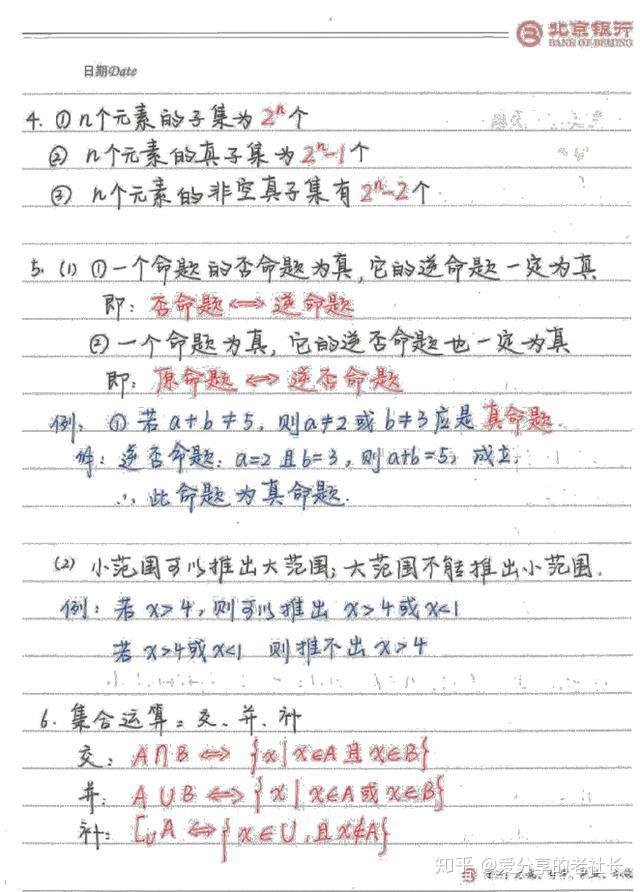 北京银行
BANK OF BEIJING
日期Date
4. ① n个元素的子集为2ⁿ个
② n个元素的真子集为2ⁿ-1个
③ n个元素的非空真子集有2ⁿ-2个
5. (1) ①一个命题的否命题为真,它的逆命题一定为真
即: 否命题⟺逆命题
②一个命题为真,它的逆否命题也一定为真
即: 原命题⟺逆否命题
例: ① 若a+b≠5, 则a≠2或b≠3应是真命题.
解: 逆否命题: a=2且b=3, 则a+b=5, 成立.
∴ 此命题为真命题.
(2) 小范围可以推出大范围; 大范围不能推出小范围.
例: 若x>4, 则可以推出 x>4或x<1
若x>4或x<1 则推不出x>4
6. 集合运算: 交、并、补
交: A∩B ⟺ {x|x∈A且x∈B}
并: A∪B ⟺ {x|x∈A或x∈B}
补: ∁ᵤA ⟺ {x∈U, 且x∉A}
知乎 @爱分享的老社长